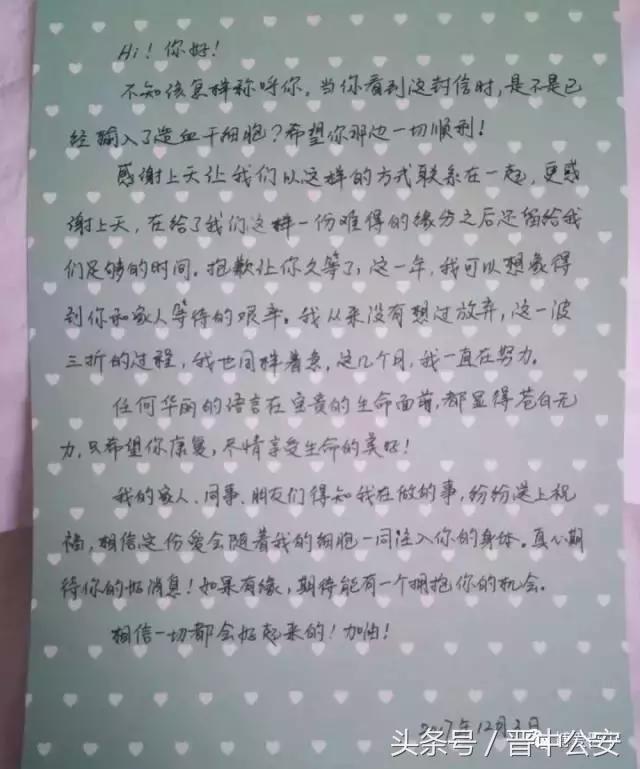 Hi！你好！
不知该怎样称呼你，当你看到这封信时，是不是已
经输入了造血干细胞？希望你那边一切顺利！
感谢上天让我们以这样的方式联系在一起，更感
谢上天，在给了我们这样一份难得的缘分之后还留给我
们足够的时间。抱歉让你久等了，这一年，我可以想象得
到你和家人等待的艰辛。我从来没有想过放弃，这一波
三折的过程，我也同样着急，这几个月，我一直在努力。
任何华丽的语言在宝贵的生命面前，都显得苍白无
力，只希望你康复，尽情享受生命的美好！
我的家人、同事、朋友们得知我在做的事，纷纷送上祝
福，相信这份爱会随着我的细胞一同注入你的身体。真心期
待你的好消息！如果有缘，期待能有一个拥抱你的机会。
相信一切都会好起来的！加油！
2017年12月2日
头条号／晋中公安